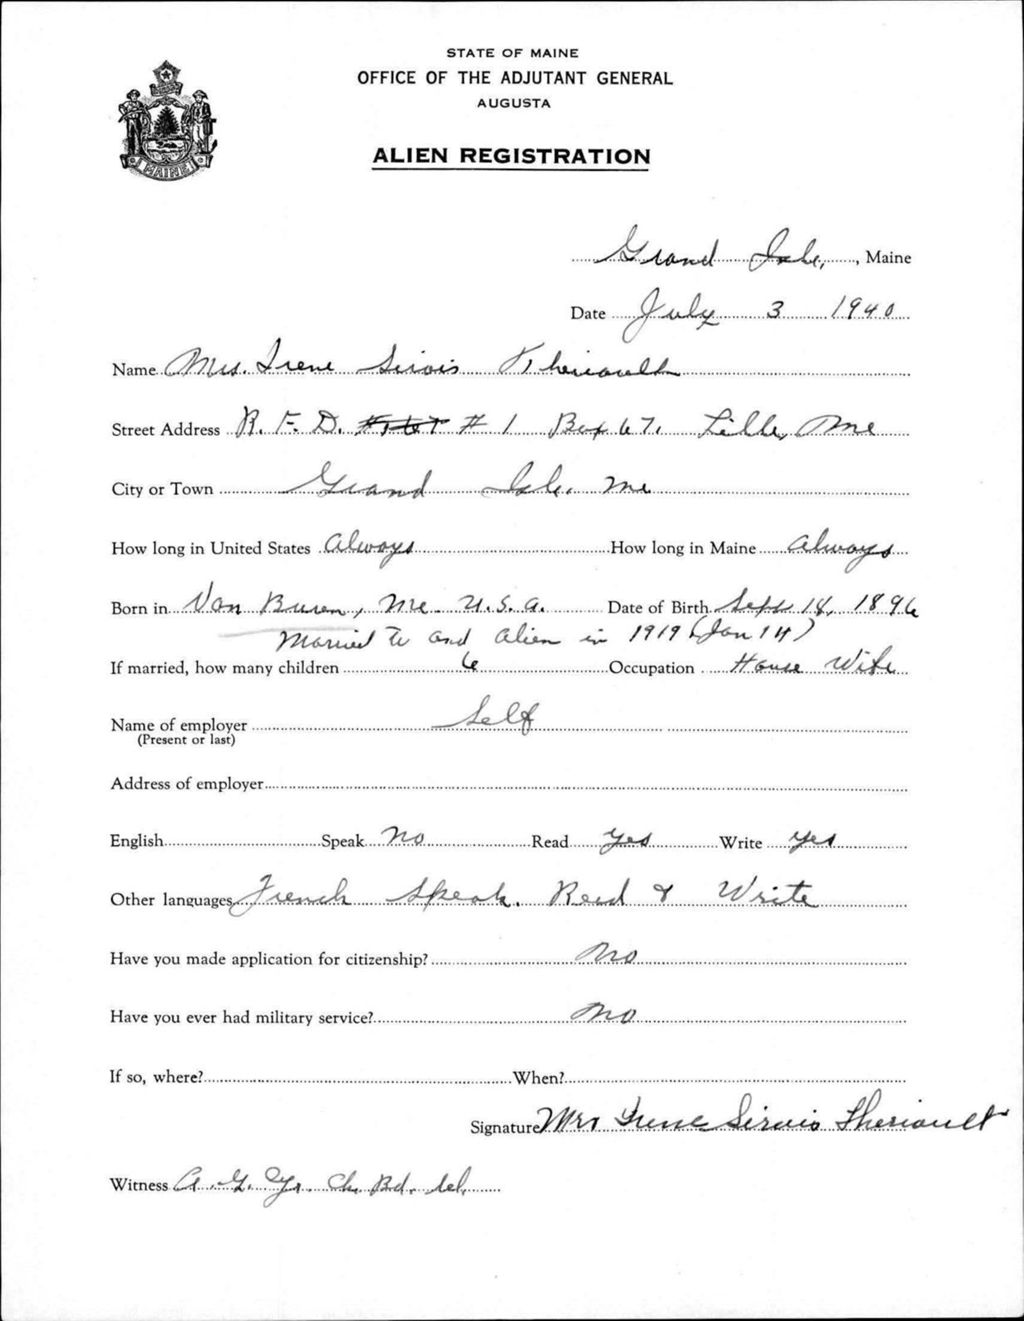 STATE OF MAINE
OFFICE OF THE ADJUTANT GENERAL
AUGUSTA
ALIEN REGISTRATION
MAINE
Grand Isle, , Maine
Date July 3 1940
Name Mrs. Irene Sirois Theriault
Street Address R. F. D. # 1 Box 67. Lille, Me
City or Town Grand Isle, Me
How long in United States Always How long in Maine Always
Born in Van Buren, Me. U.S.A. Date of Birth Sept 18, 1896
Married to and Alien in 1919 (Jan 14)
If married, how many children 6 Occupation House Wife
Name of employer Self
(Present or last)
Address of employer
English Speak No Read Yes Write Yes
Other languages French Speak. Read & Write
Have you made application for citizenship? No
Have you ever had military service? No
If so, where? When?
Signature Mrs Irene Sirois Theriault
Witness A. G. Ch. Bd. Sel.